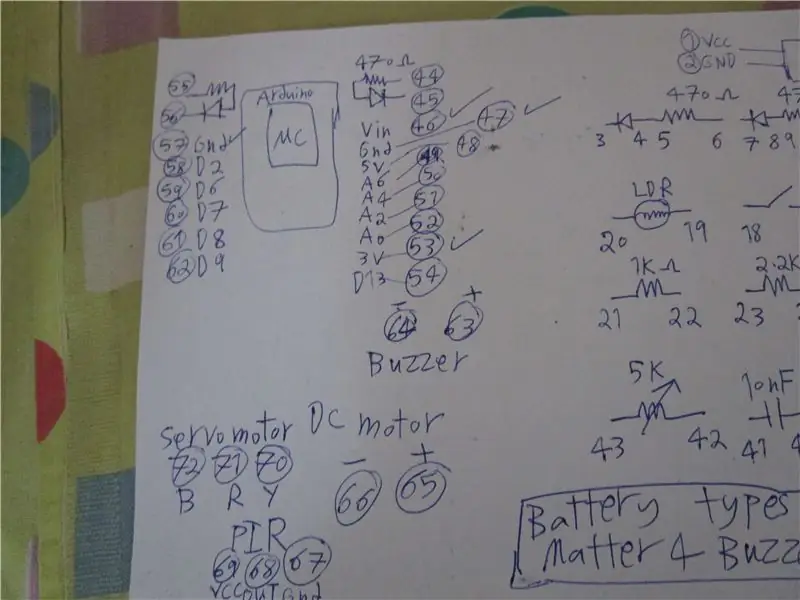 470Ω
55
44
56
45
Arduino
MC
57 Gnd
58 D2
59 D6
60 D7
61 D8
62 D9
Vin 46
Gnd 47
5V 48
A6 49
A4 50
A2 51
A0 52
3V 53
D13 54
- +
64 63
Buzzer
1 VCC
2 GND
470Ω 47
3 4 5 6 7 8 9
LDR
20 19 18
1KΩ 2.2K
21 22 23
5K 10nF
43 42 41
Servo motor
72 71 70
B R Y
DC motor
- +
66 65
PIR
69 68 67
VCC OUT Gnd
Battery types
Matter 4 Buzz